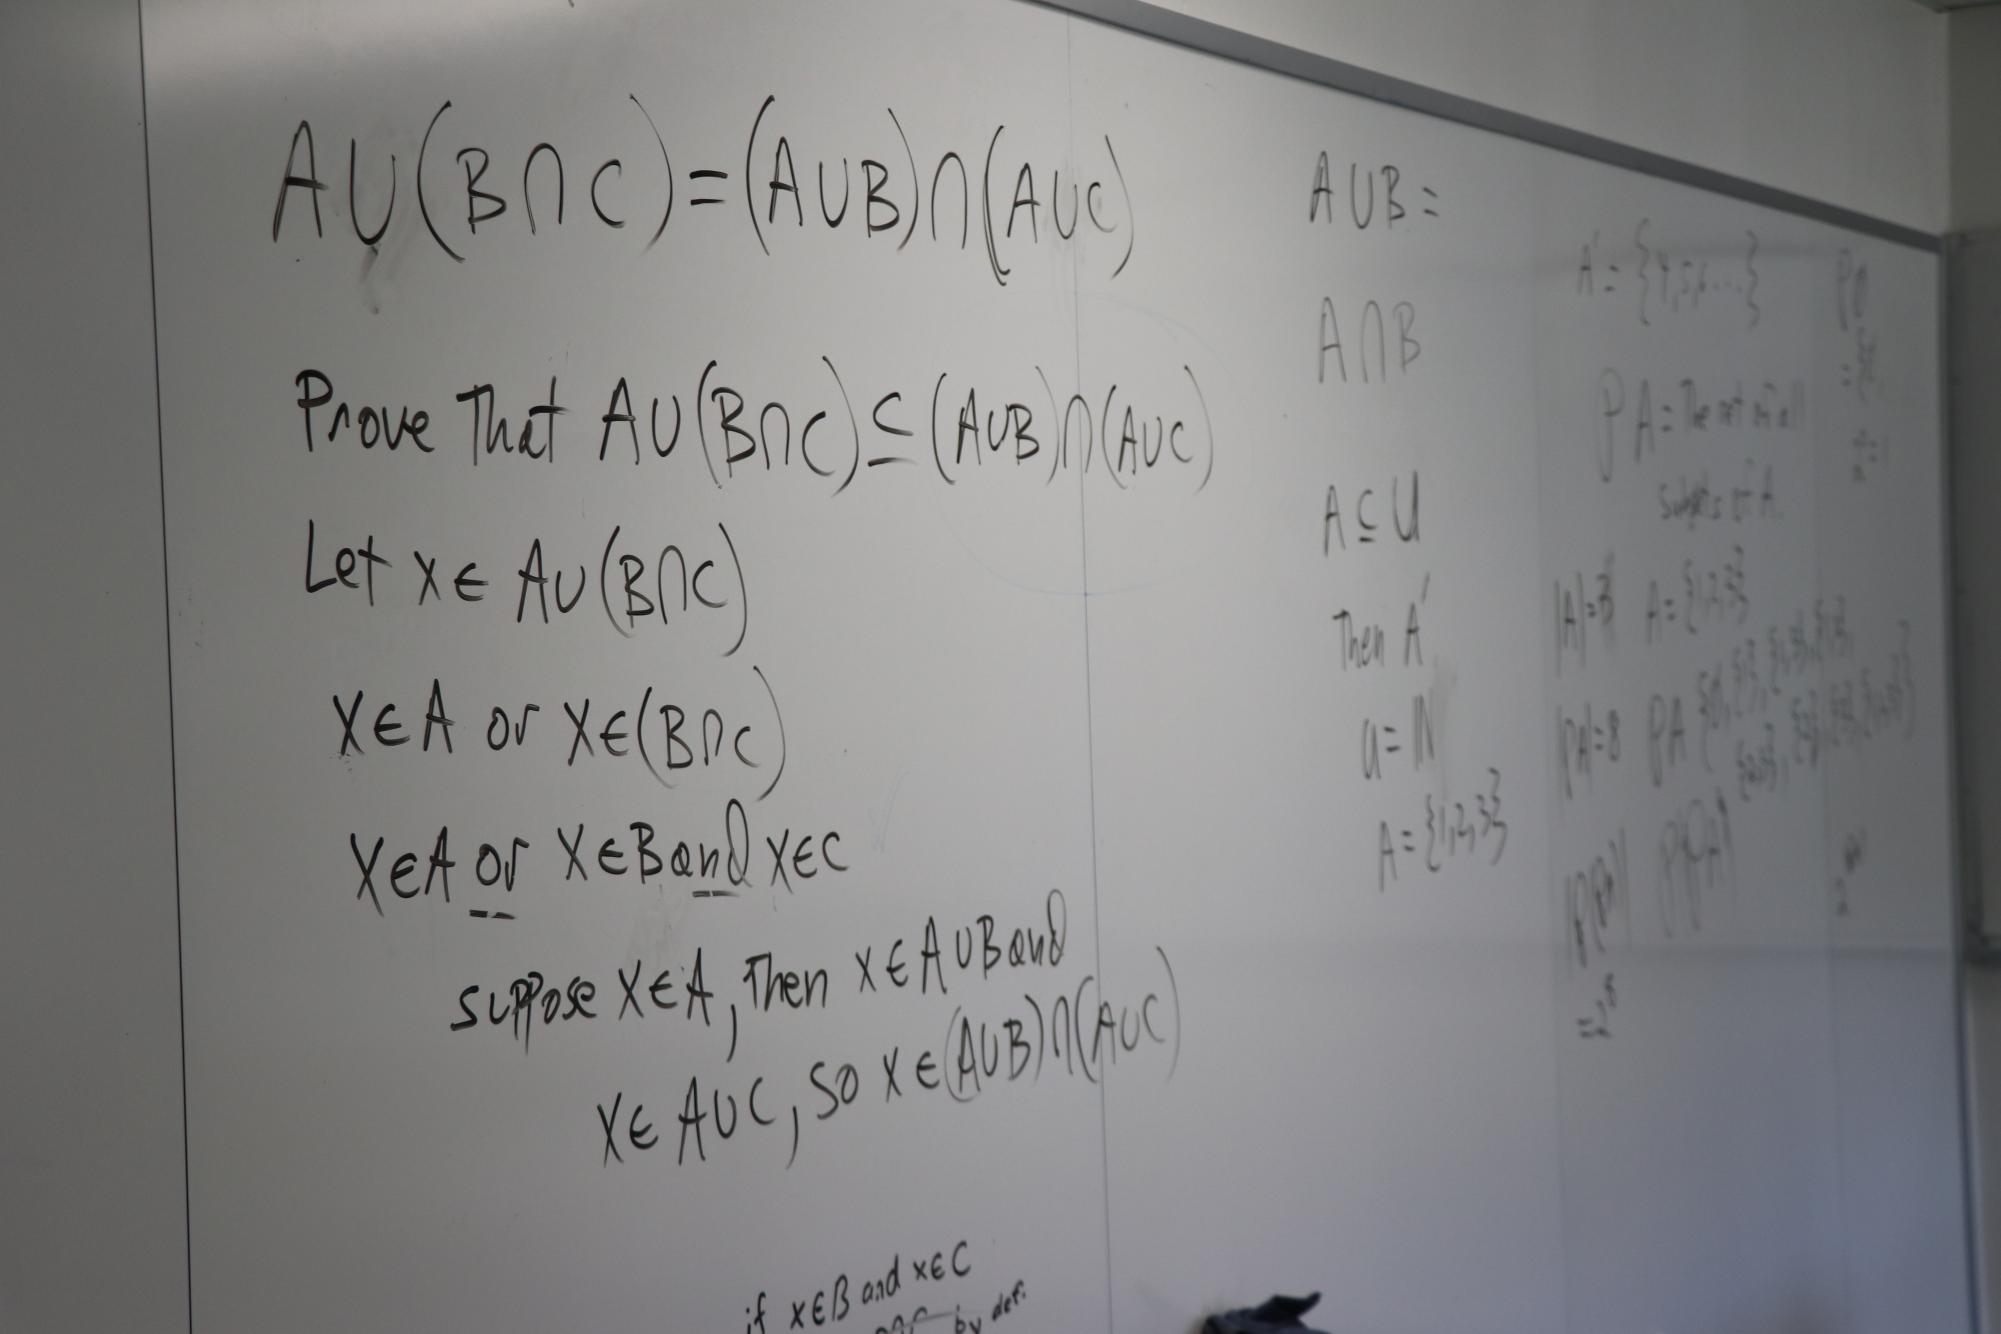 A∪(B∩C)=(A∪B)∩(A∪C)
Prove That A∪(B∩C)⊆(A∪B)∩(A∪C)
Let x∈ A∪(B∩C)
x∈A or x∈(B∩C)
x∈A or x∈B and x∈C
suppose x∈A, Then x∈A∪B and
x∈ A∪C, so x∈(A∪B)∩(A∪C)
if x∈B and x∈C
by def.
A∪B=
A∩B
A⊆U
Then A′
U=ℕ
A={1,2,3}
A′={4,5,6...}
PA= The set of all
subsets of A.
|A|=3 A={1,2,3}
|PA|=8 PA
=2⁸